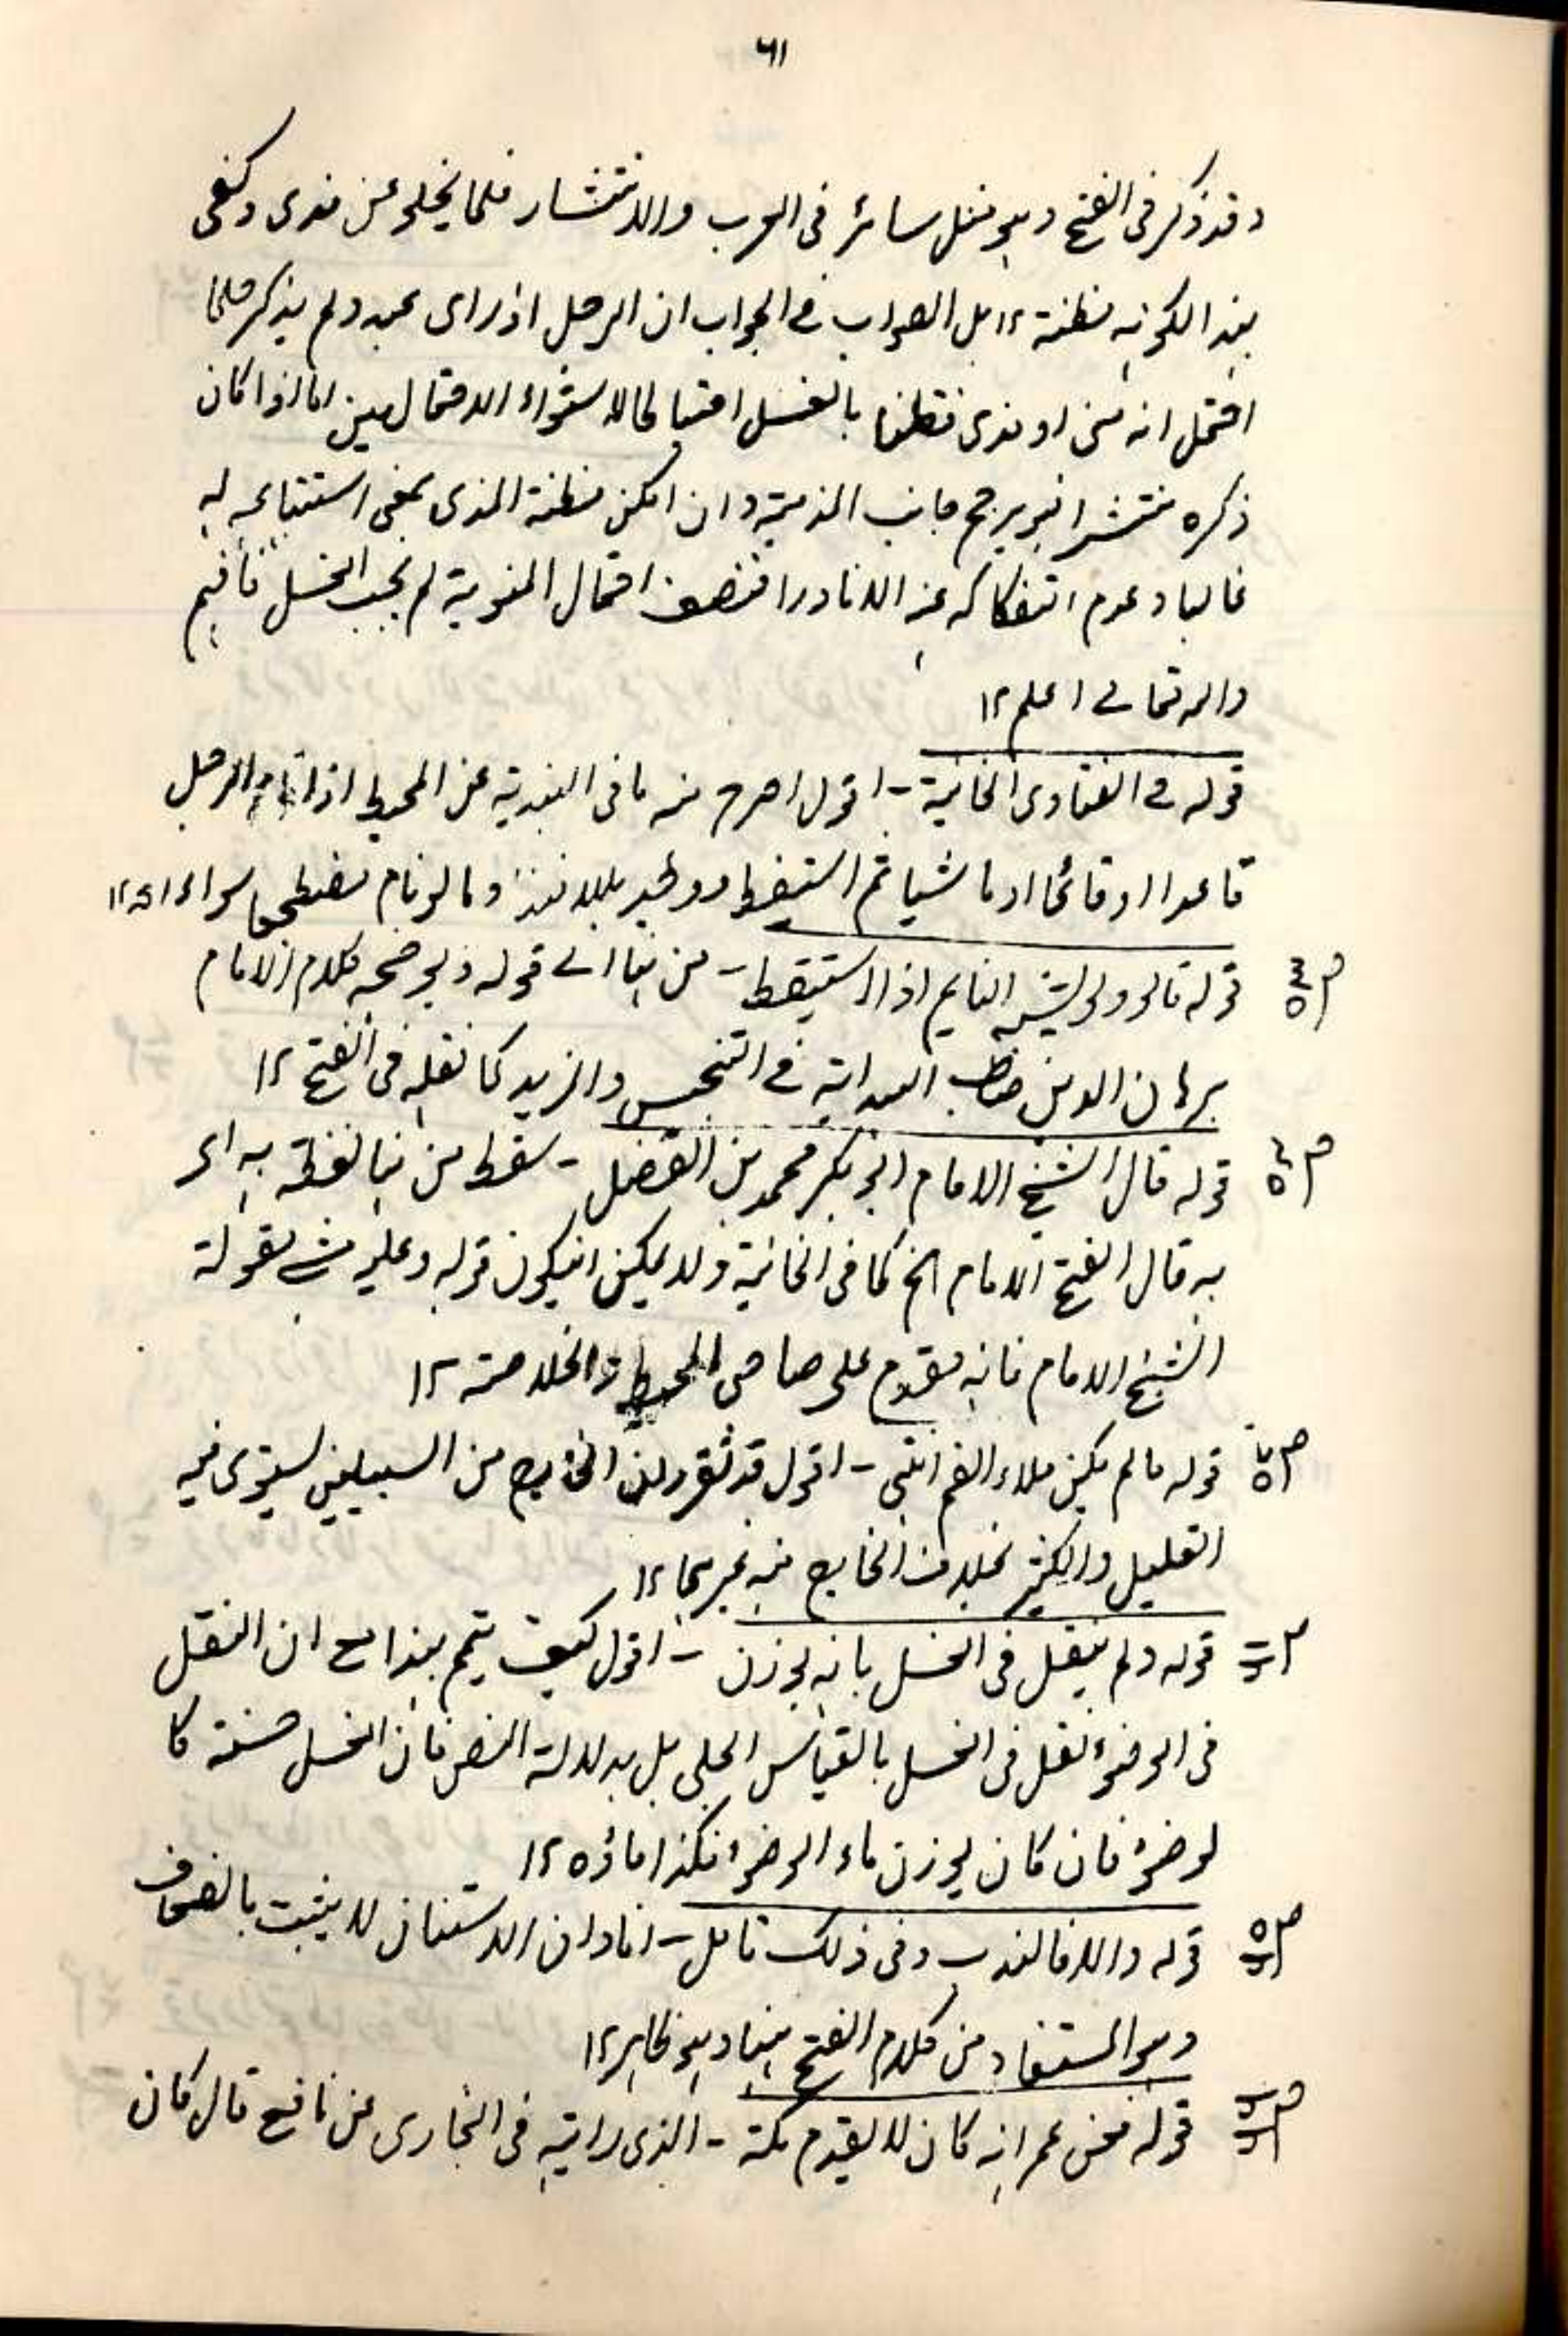 ٦١
وقد ذكر في الفتح وهو مثل سائر في العرب والانتشار قلما يخلو عن مذى وكفى
بهذا لكونه مظنة ١٢ بل الصواب في الجواب ان الرجل اذا راى ولم يذكر حلما
احتمل انه منى او مذى بالغسل احتياطا لاستواء الاحتمالين اما اذا كان
ذكره منتشرا جانب المذيية وان امكن مظنة المذى بمعنى استتباعه له
غالبا وعدم انفكاكه عنه الا نادرا فتضعف احتمال المنوية لم يجب الغسل فافهم
والله تعالى اعلم ١٢
قوله في الفتاوى الخانية - اقول اصرح منه ما في الهندية عن المحيط اذا نام الرجل
قاعدا او قائما او ماشيا ثم استيقظ ووجد بللا فهذا وما لو نام مضطجعا سواء اھ ١٢
ص ٥٣ قوله قالوا ولو النايم اذا استيقظ - من هنا الى قوله ويوضحه كلام الامام
برهان الدين صاحب الهداية في التجنيس والمزيد كما نقله في الفتح ١٢
ص ٥٤ قوله قال الشيخ الامام ابو بكر محمد بن الفضل - سقط من هنا لفظة به اى
به قال الشيخ الامام الخ كما في الخانية ولا يمكن ان يكون قوله وعليه مشى مقولة
الشيخ الامام فانه مقدم على صاحبى المحيط والخلاصة ١٢
قوله ما لم يكن ملاء الفم انتهى - اقول قد تقرر ان الخارج من السبيلين يستوى فيه
القليل والكثير بخلاف الخارج من غيرهما ١٢
قوله ولم ينقل في الغسل بانه يوزن - اقول كيف يتم هذا مع ان النقل
في الوضوء نقل في الغسل بالقياس الجلى بل بدلالة النص فان الغسل حسنة كا
لوضوء فان كان يوزن ماء الوضوء فكذا ماؤه ١٢
قوله والا فالندب وفي ذلك تامل - افاد ان الاستنان لا يثبت بالضعاف
وهو المستفاد من كلام الفتح هنا وهو ظاهر ١٢
قوله فعن عمر انه كان لا يقدم مكة - الذى رايته في البخارى عن نافع قال كان